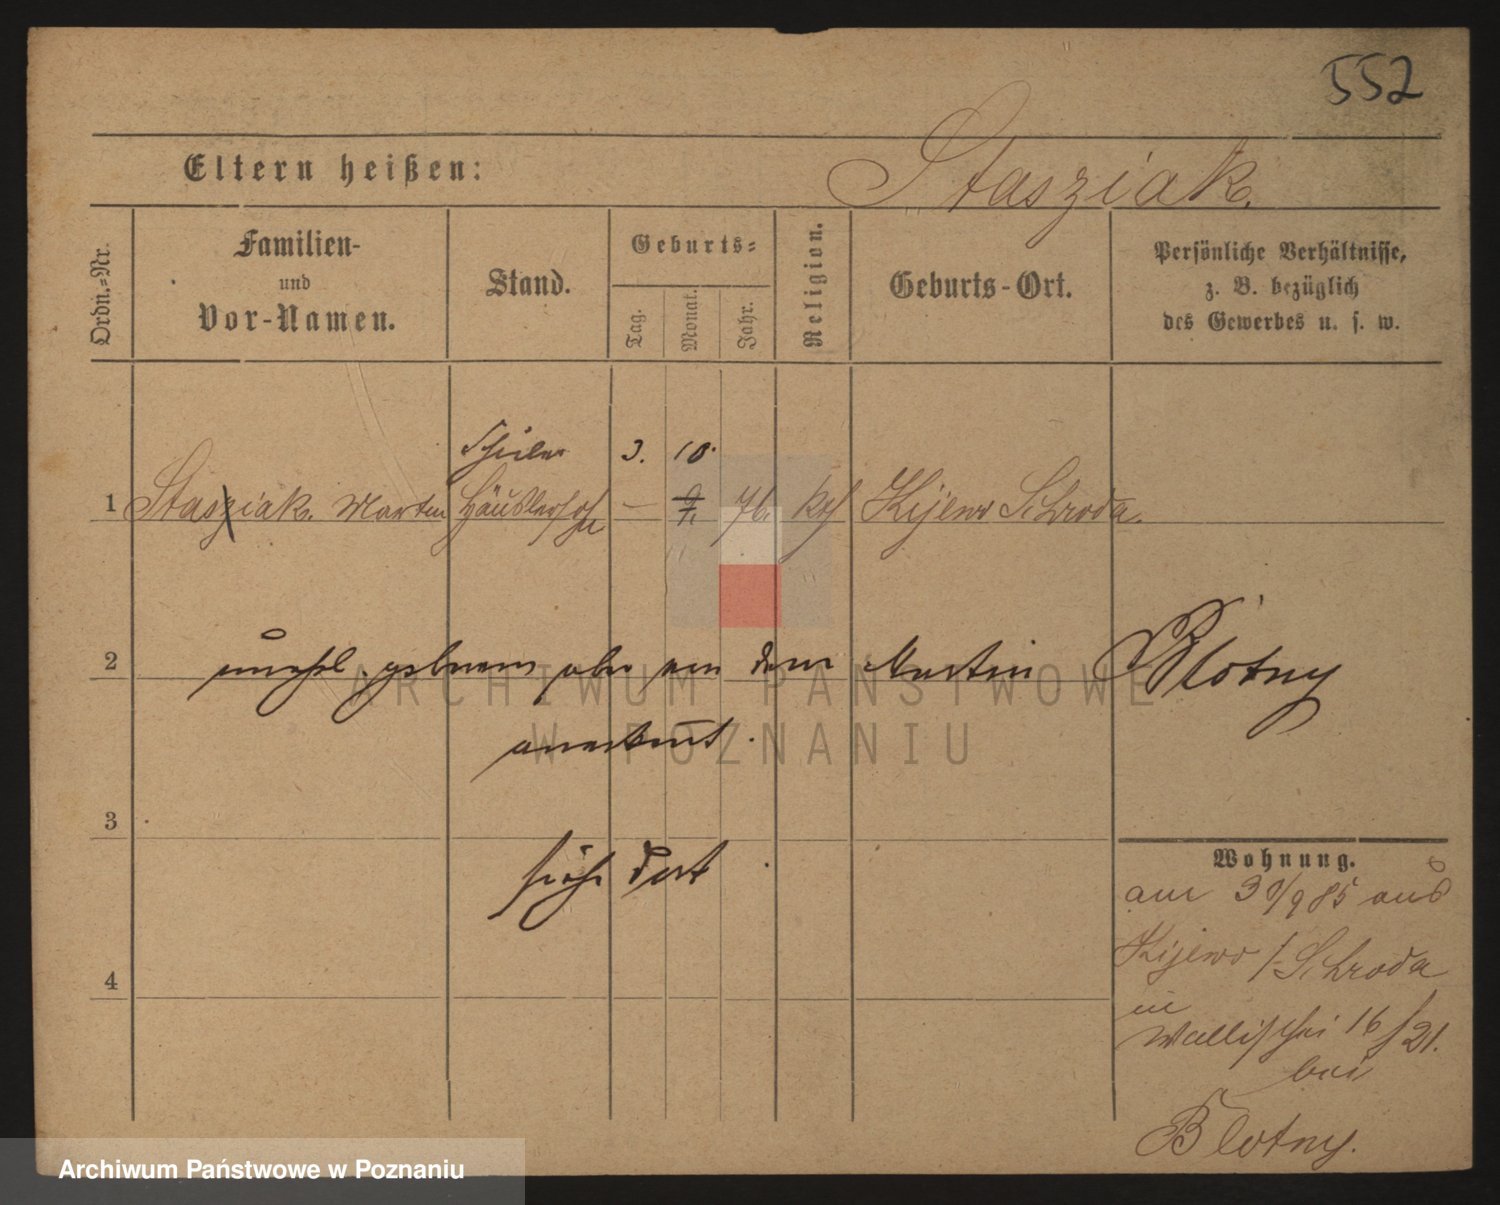 552
Eltern heißen: Stasziak.
Ordn.-Nr. Familien- und Vor-Namen. Stand. Geburts- Tag. Monat. Jahr. Religion. Geburts-Ort. Persönliche Verhältnisse, z. B. bezüglich des Gewerbes u. s. w.
Schüler 3. 10.
1 Stasziak. Martin Häuslersohn — 9/11 76. kth Kijewo Schroda.
2 unehel. geboren aber von dem Martin Blotny
anerkannt.
3
siehe dort.
4
Wohnung.
am 30/9 85 aus
Kijewo /-Schroda
in
Wallischei 16/21.
bei
Blotny.
ARCHIWUM PAŃSTWOWE
W POZNANIU
Archiwum Państwowe w Poznaniu